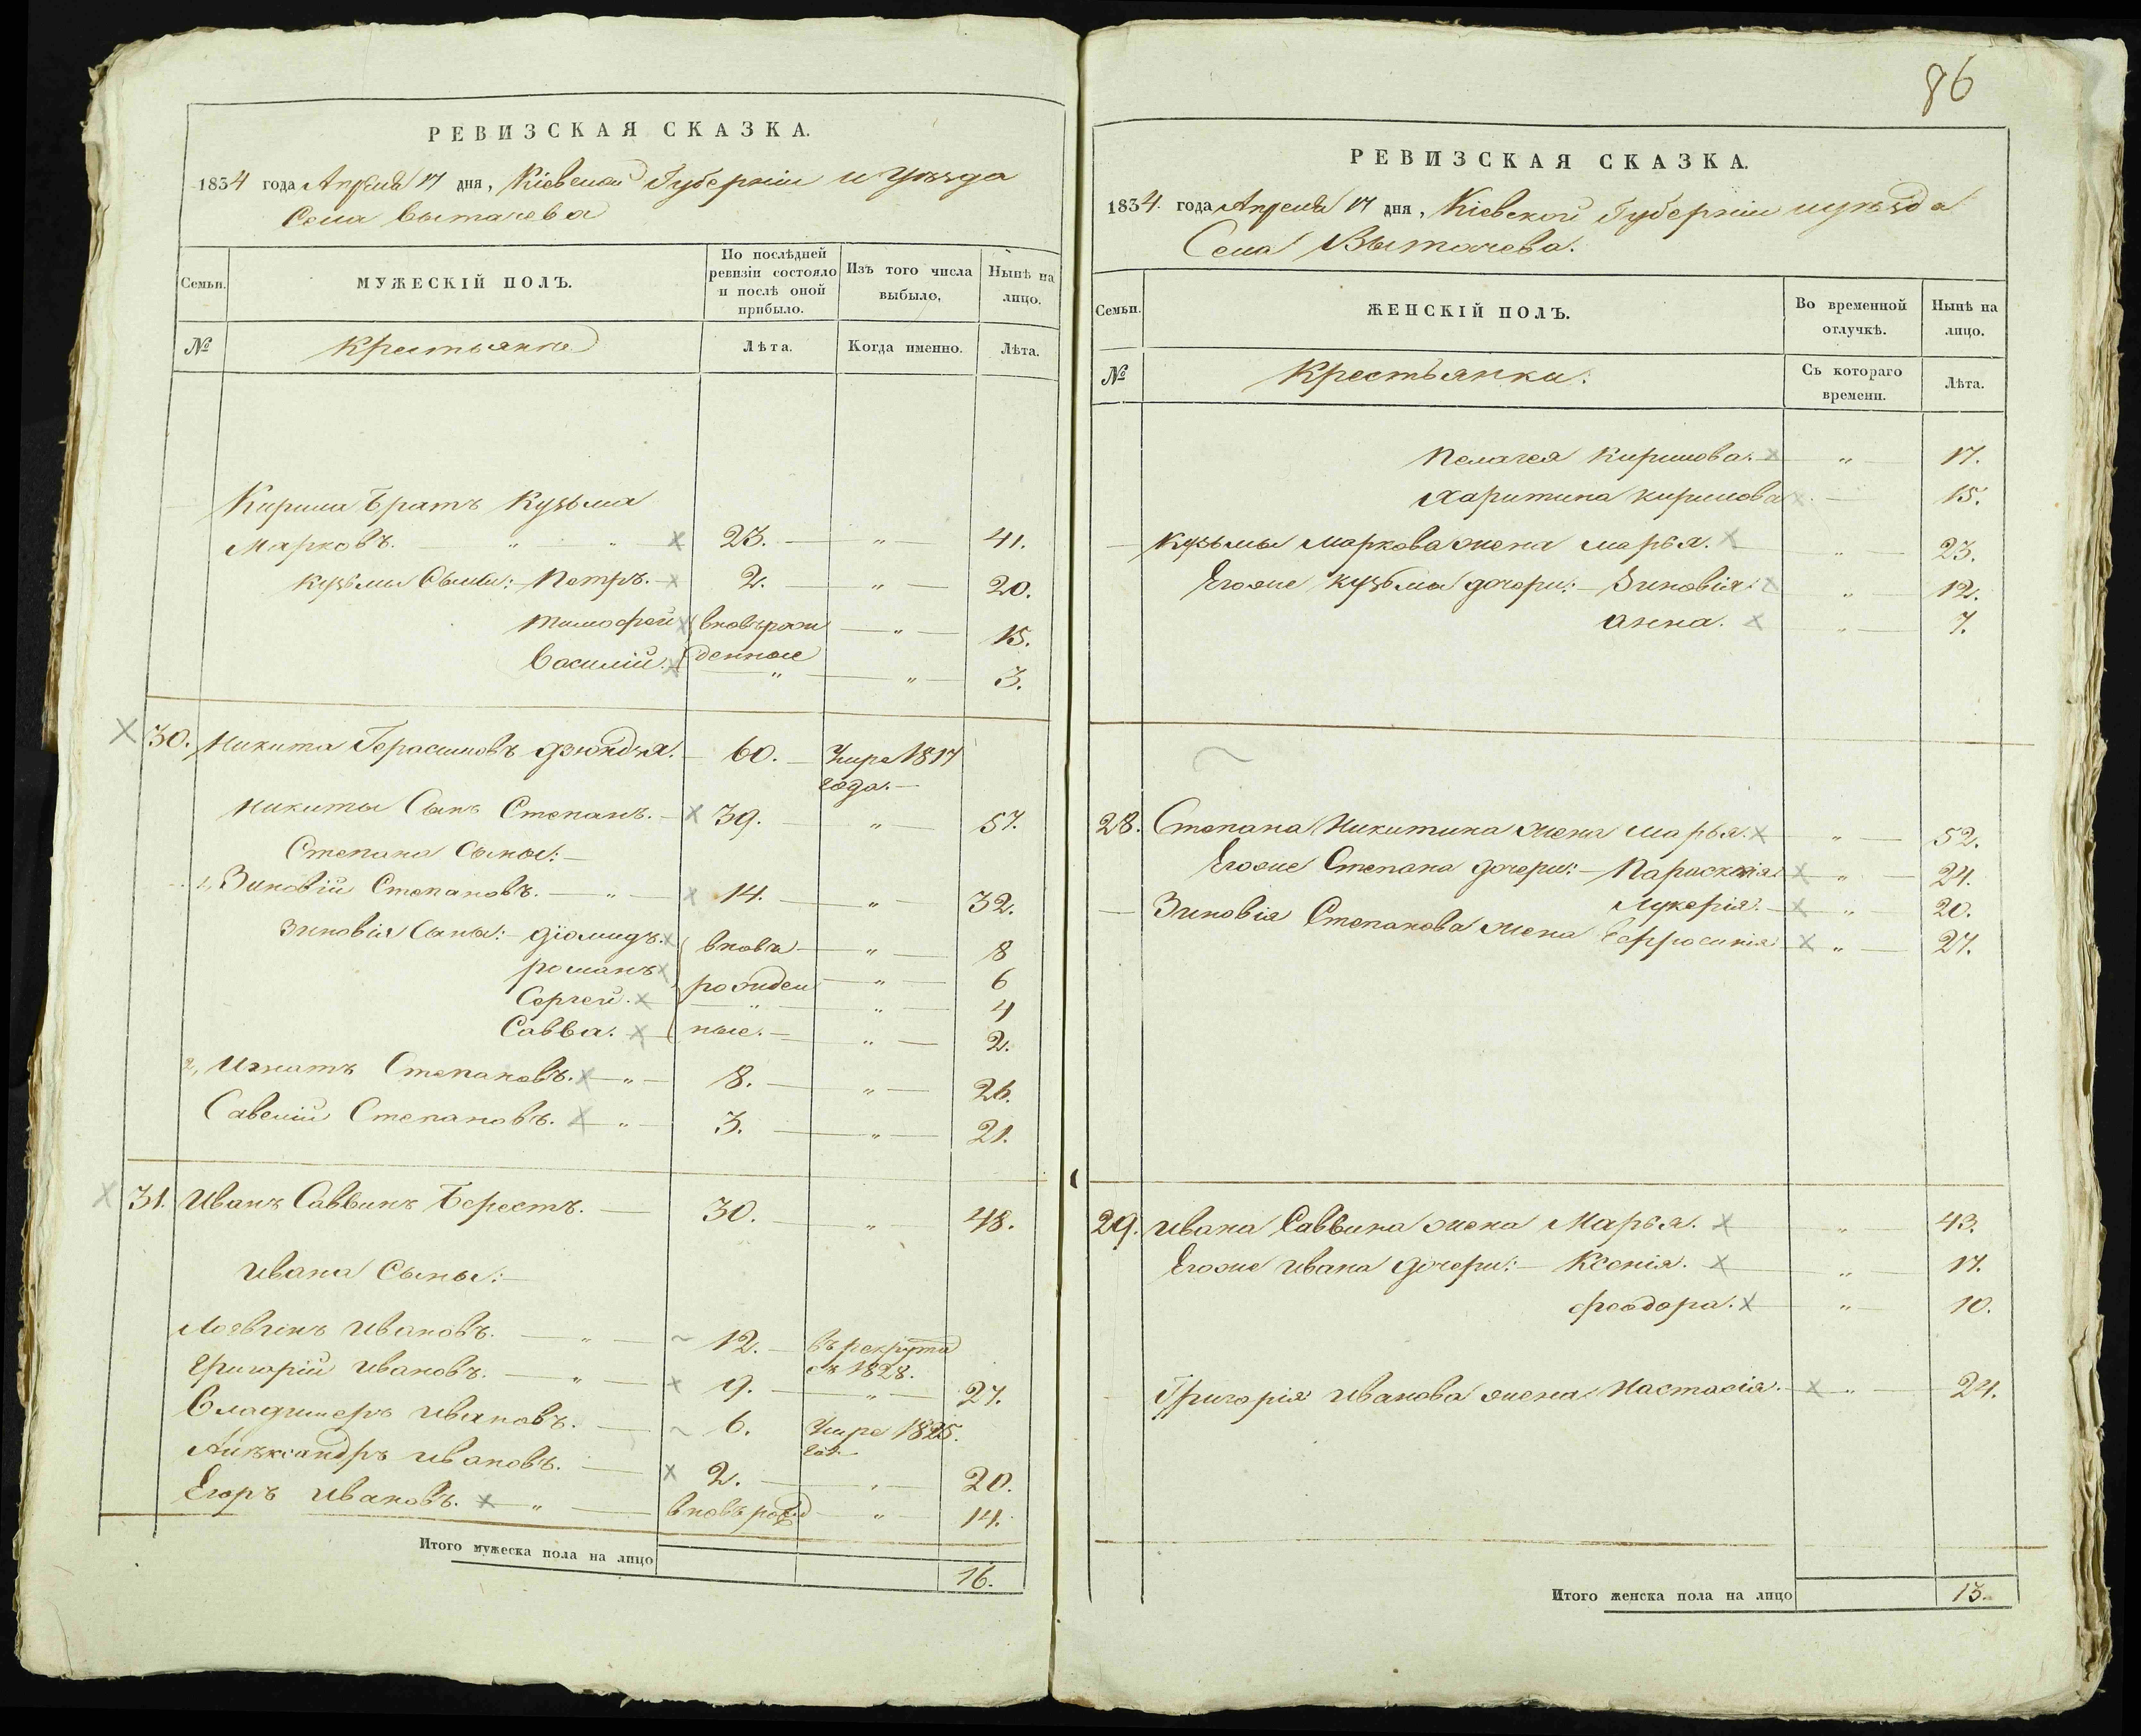 РЕВИЗСКАЯ СКАЗКА.
1834 года Апреля 17 дня, Кіевской Губерніи и Уѣзда
Села Вытачева
Семьи. МУЖЕСКІЙ ПОЛЪ. По послѣдней ревизіи состояло и послѣ оной прибыло. Изъ того числа выбыло, Нынѣ на лицо.
№ Крестьяне Лѣта. Когда именно. Лѣта.
Кирила братъ Кузьма
Марковъ. " " 23. " 41.
Кузьмы Сыны: Петръ. 2. " 20.
Тимофей вновь рож " 15.
Василій. денные " " 3.
30. Никита Герасимовъ 60. Умре 1817
года.
Никиты Сынъ Степанъ. 39. " 57.
Степана Сыны:
1, Зиновій Степановъ. " 14. " 32.
Зиновія Сыны: Діомидъ. вновь " 8
романъ рожден " 6
Сергей. " " 4
Савва. ные. " 2.
2, Игнатъ Степановъ. " 8. " 26.
Савелій Степановъ. " 3. " 21.
31. Иванъ Саввинъ Берестъ. 30. " 48.
Ивана Сыны:
Логвинъ Ивановъ. " 12. въ рекрута
съ 1828.
Григорій Ивановъ. " 9. " 27.
Владимеръ Ивановъ. 6. Умре 1825.
год.
Алѣксандръ Ивановъ. 2. " 20.
Егоръ Ивановъ. " вновь рожд " 14.
Итого мужеска пола на лицо 16.
86
РЕВИЗСКАЯ СКАЗКА.
1834 года Апреля 17 дня, Кіевской Губерніи и уѣзда
Села Вытачева.
Семьи. ЖЕНСКІЙ ПОЛЪ. Во временной отлучкѣ. Нынѣ на лицо.
№ Крестьянки. Съ котораго времени. Лѣта.
Пелагея Кирилова. " 17.
Харитина Кирилова 15.
Кузьмы Маркова жена Марья. " 23.
Егоже Кузьмы дочери: Зиновія " 12.
Анна. " 7.
28. Степана Никитина жена Марья. " 52.
Егоже Степана дочери: Параскевія " 24.
Лукерія. " 20.
Зиновія Степанова жена Ефросинія " 27.
29. Ивана Саввина жена Марья. " 43.
Егоже Ивана дочери: Ксенія. " 17.
Феодора. " 10.
Григорія Иванова жена Настасія. " 24.
Итого женска пола на лицо 13.